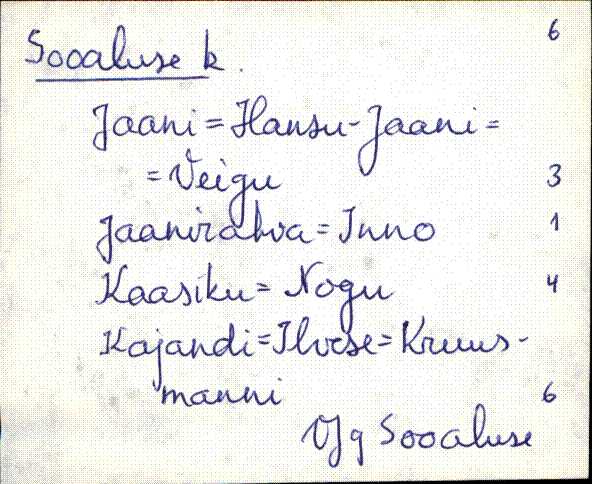 6
Sooaluse k.
Jaani = Hansu-Jaani =
= Veigu 3
Jaanirahva = Inno 1
Kaasiku = Nogu 4
Kajandi = Ilvese = Kruus-
manni 6
Vg Sooaluse